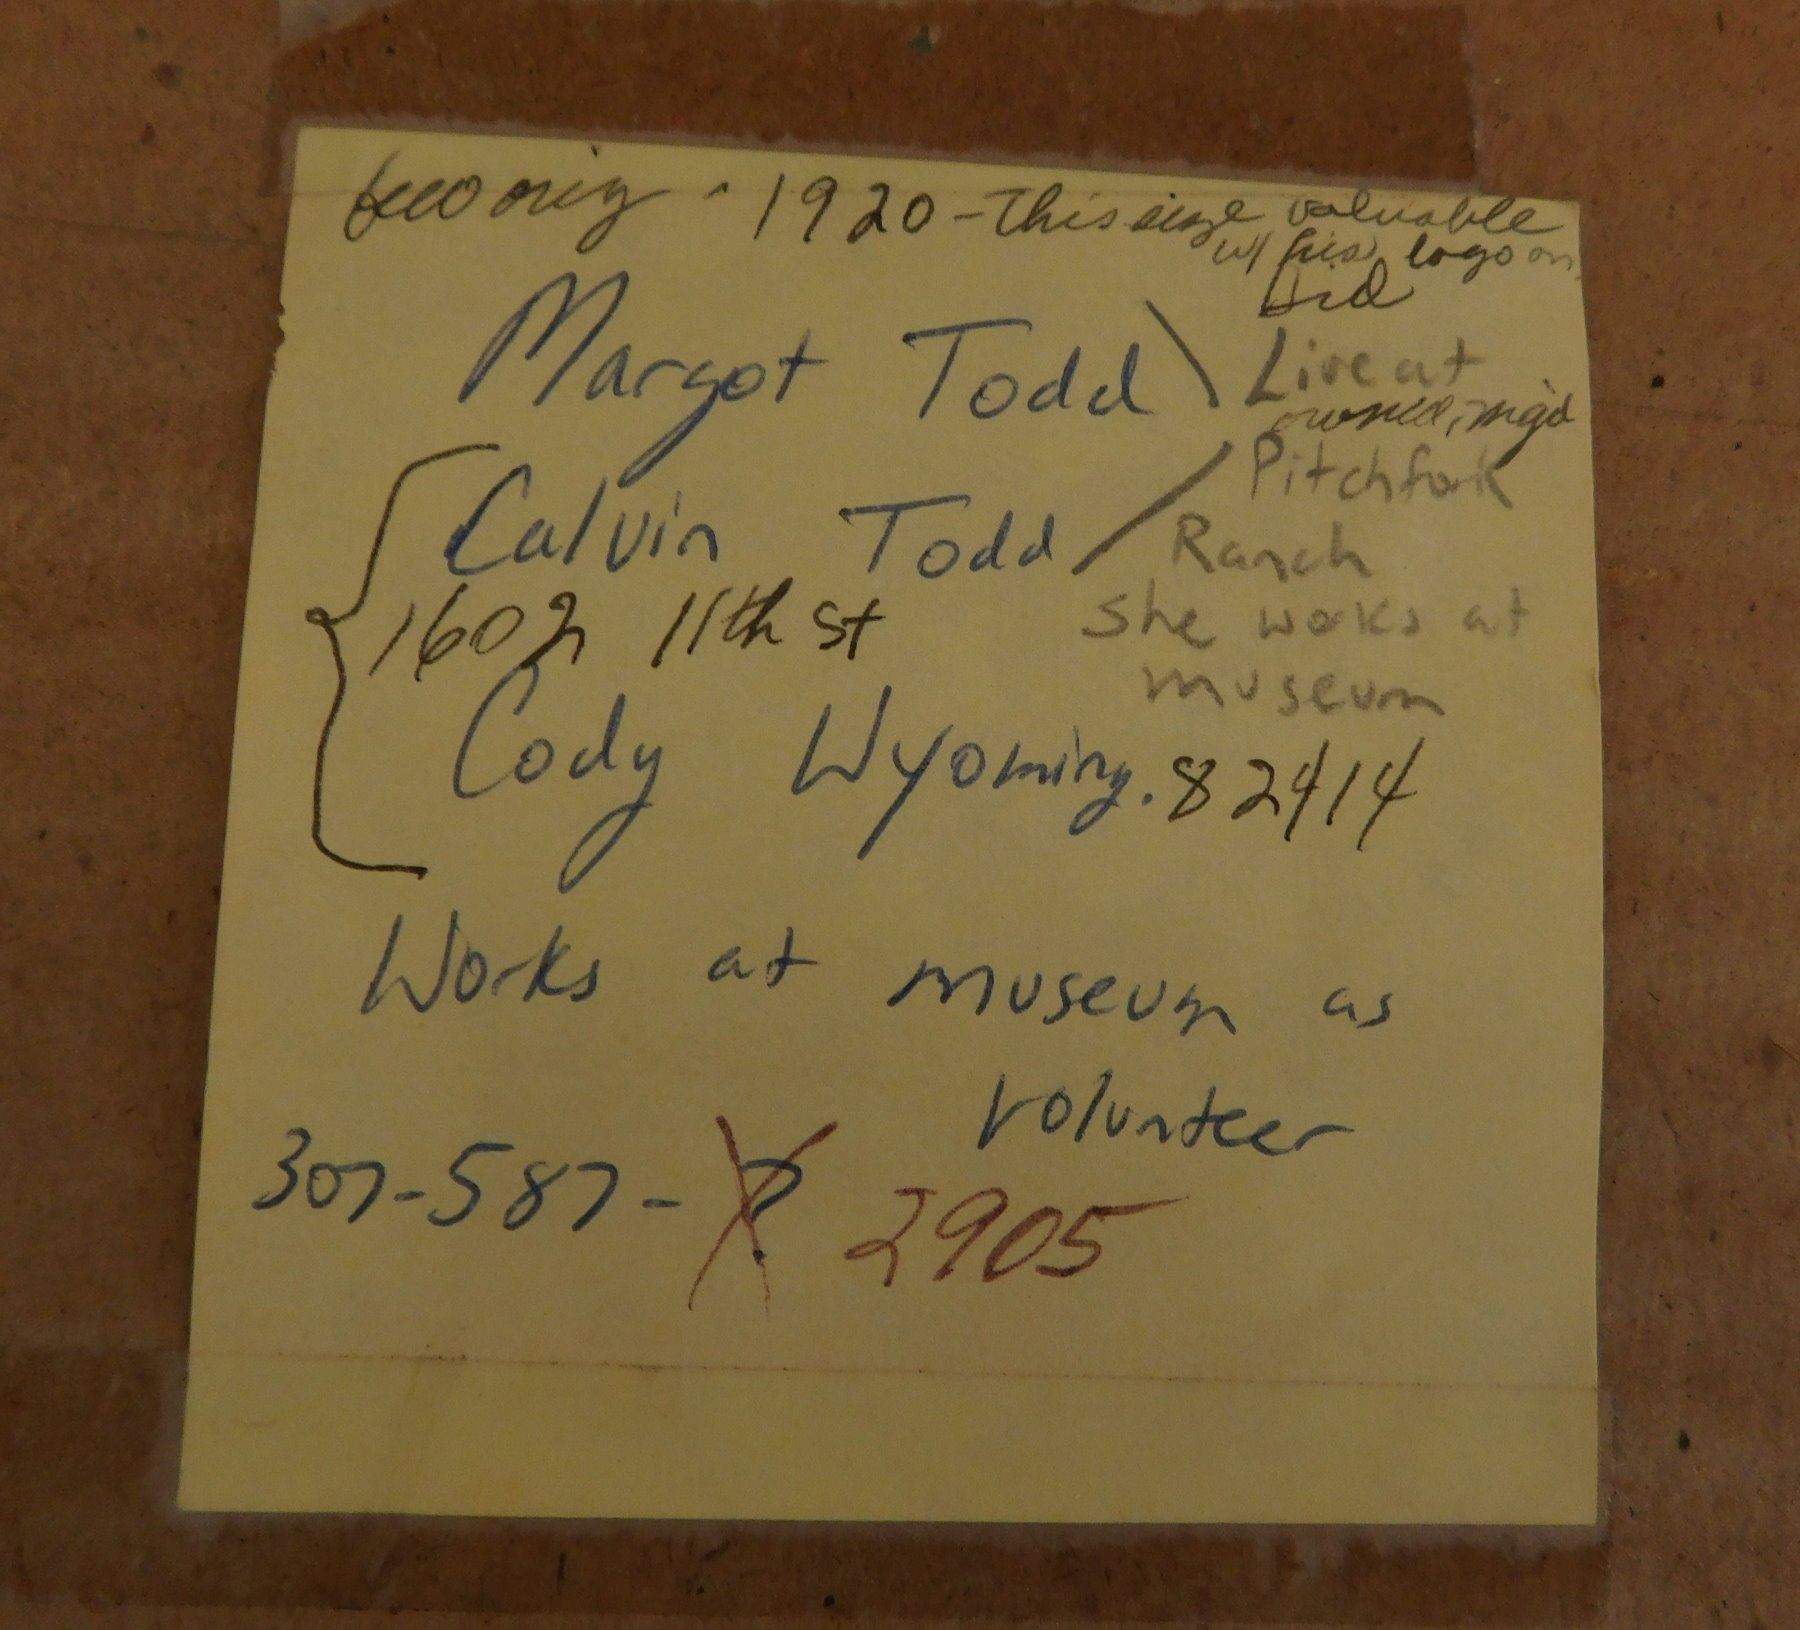 orig. 1920 - This size valuable
w/ his logo on
Margot Todd
Live at
owned, mgd
Calvin Todd
Pitchfork
Ranch
1602 11th St
She works at
museum
Cody Wyoming. 82414
Works at museum as
volunteer
307-587-? 2905